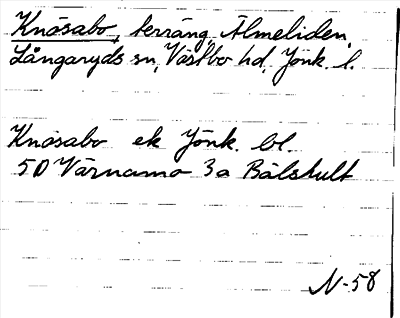 Knäsabo, terräng, Älmeliden,
Långaryds sn, Västbo hd, Jönk. l.
Knäsabo ek Jönk. bl.
5D Värnamo 3a Bälshult
N-58